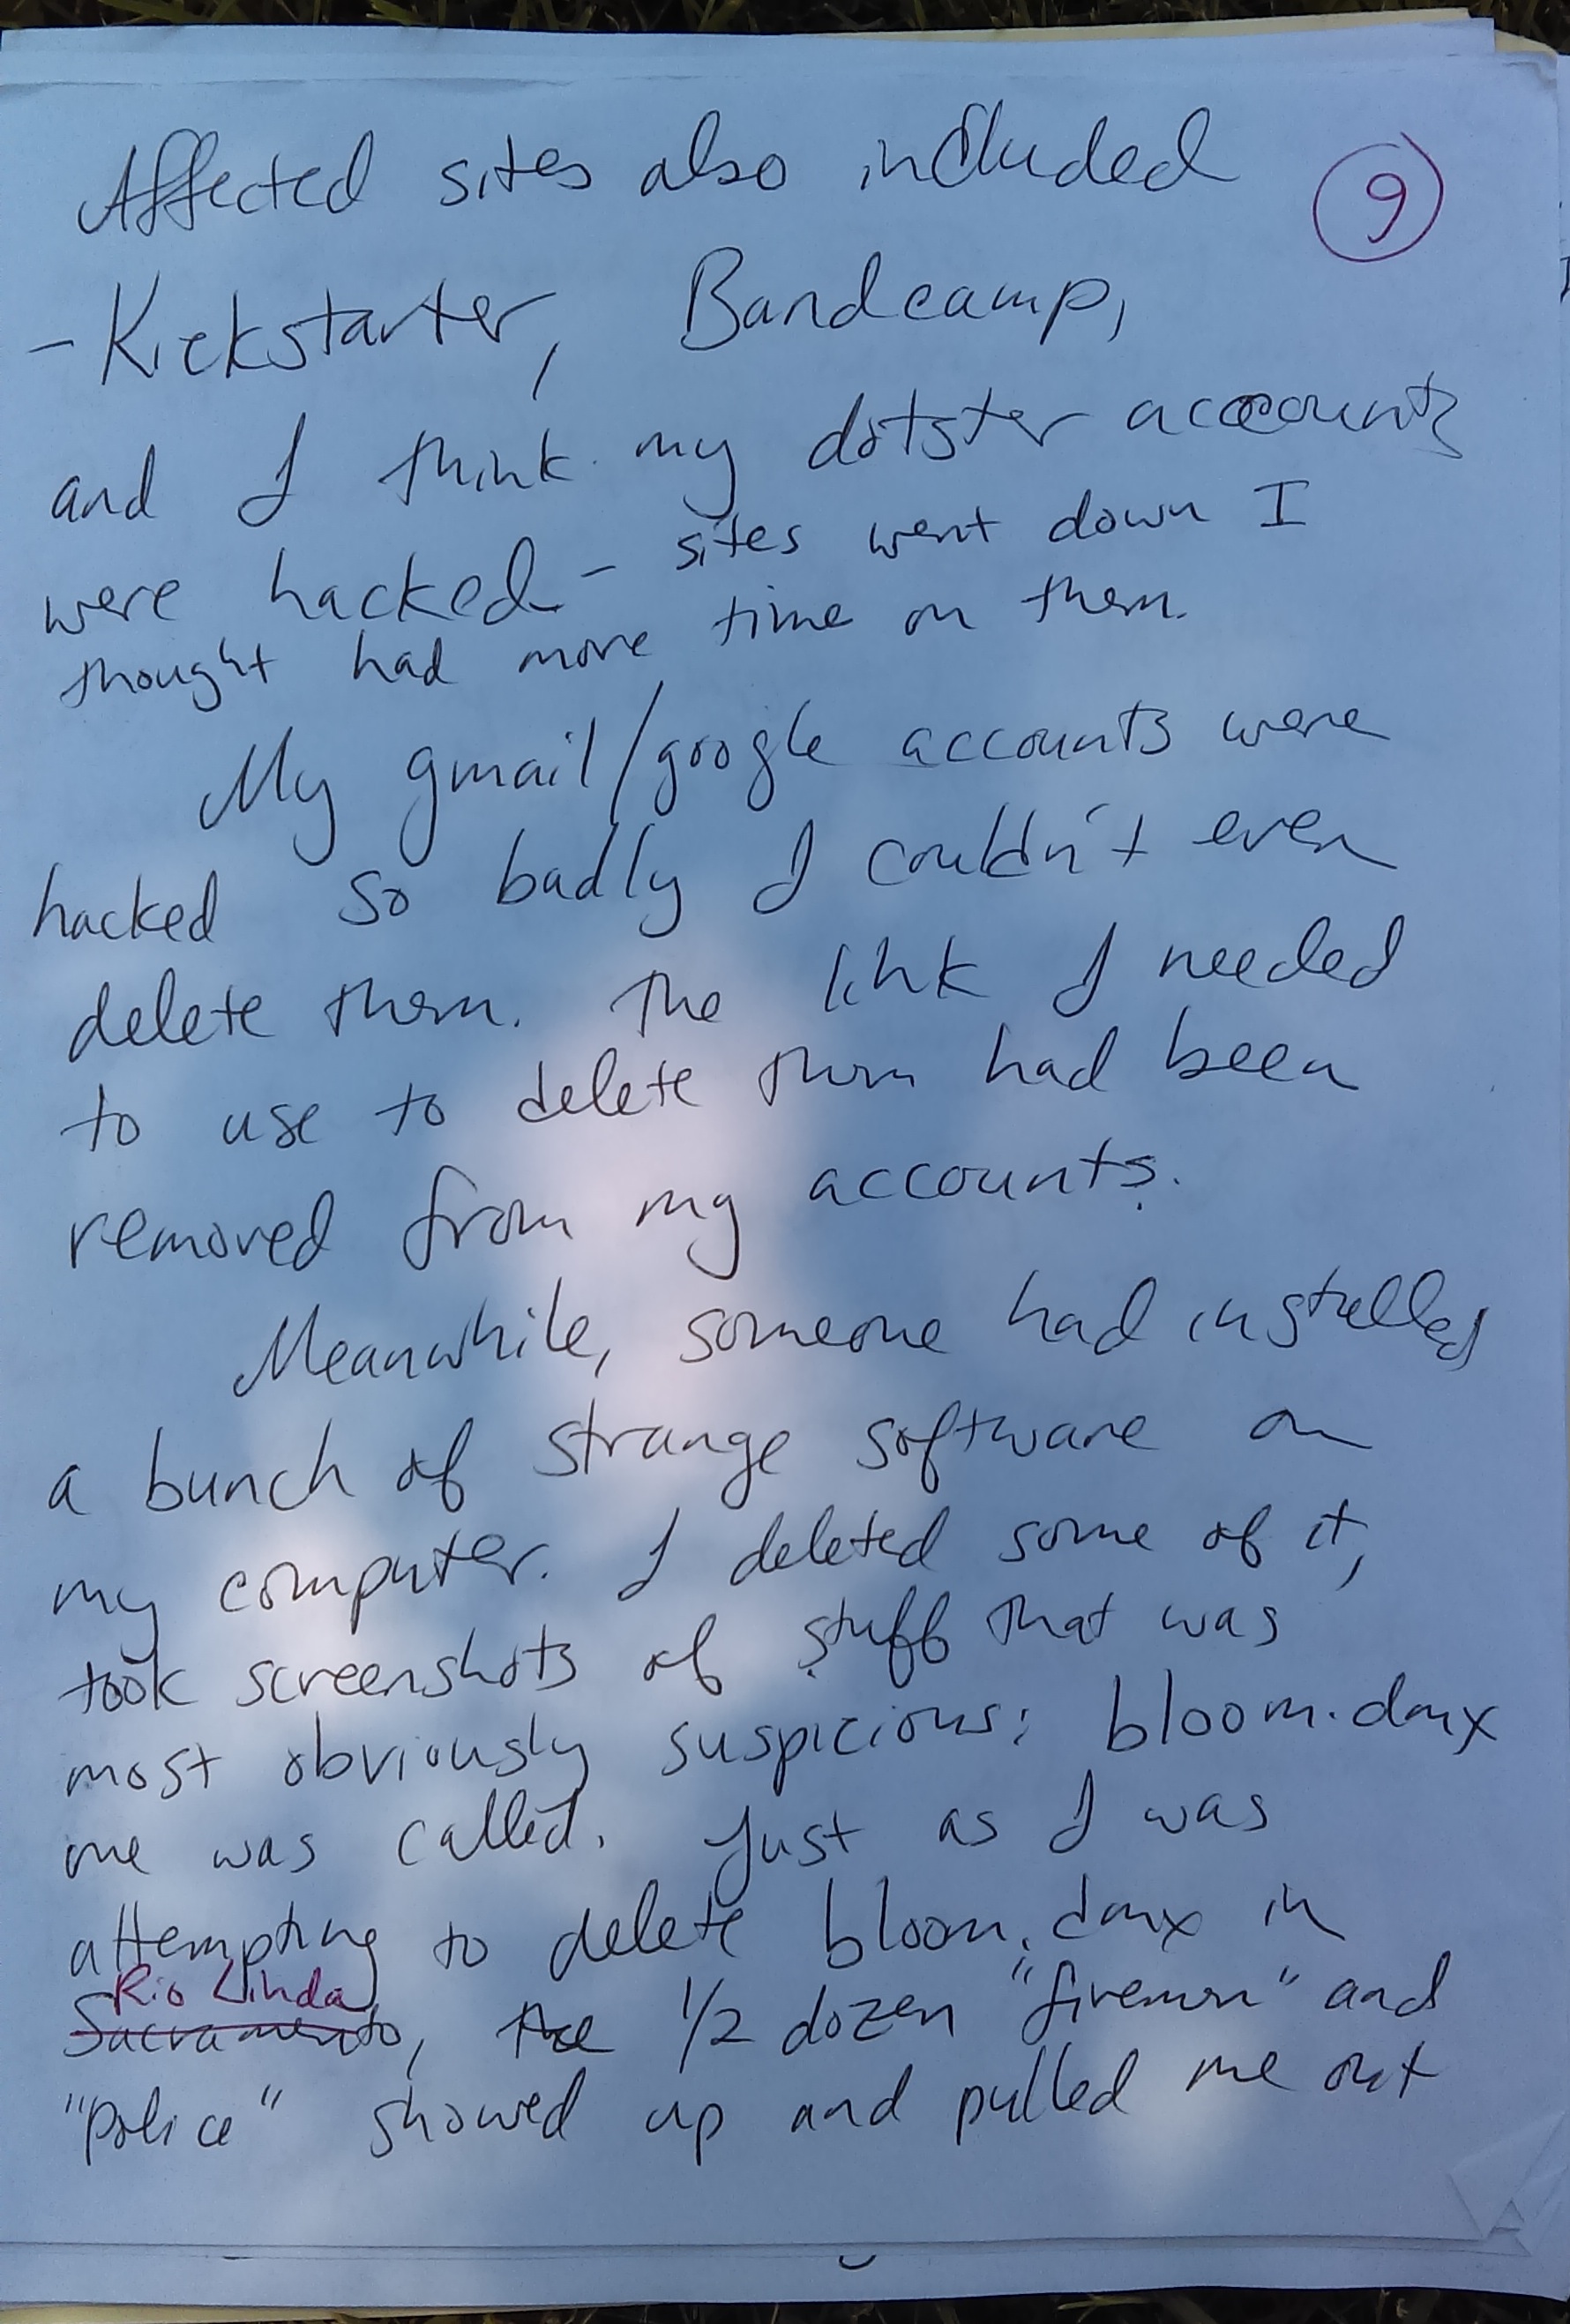 Affected sites also included
9
- Kickstarter, Bandcamp,
and I think my dotster accounts
were hacked - sites went down I
thought had more time on them.
My gmail/google accounts were
hacked so badly I couldn't even
delete them. The link I needed
to use to delete them had been
removed from my accounts.
Meanwhile, someone had installed
a bunch of strange software on
my computer. I deleted some of it,
took screenshots of stuff that was
most obviously suspicious: bloom.dmx
one was called. Just as I was
attempting to delete bloom.dmx in
Rio Linda
Sacramento, the 1/2 dozen "firemen" and
"police" showed up and pulled me out